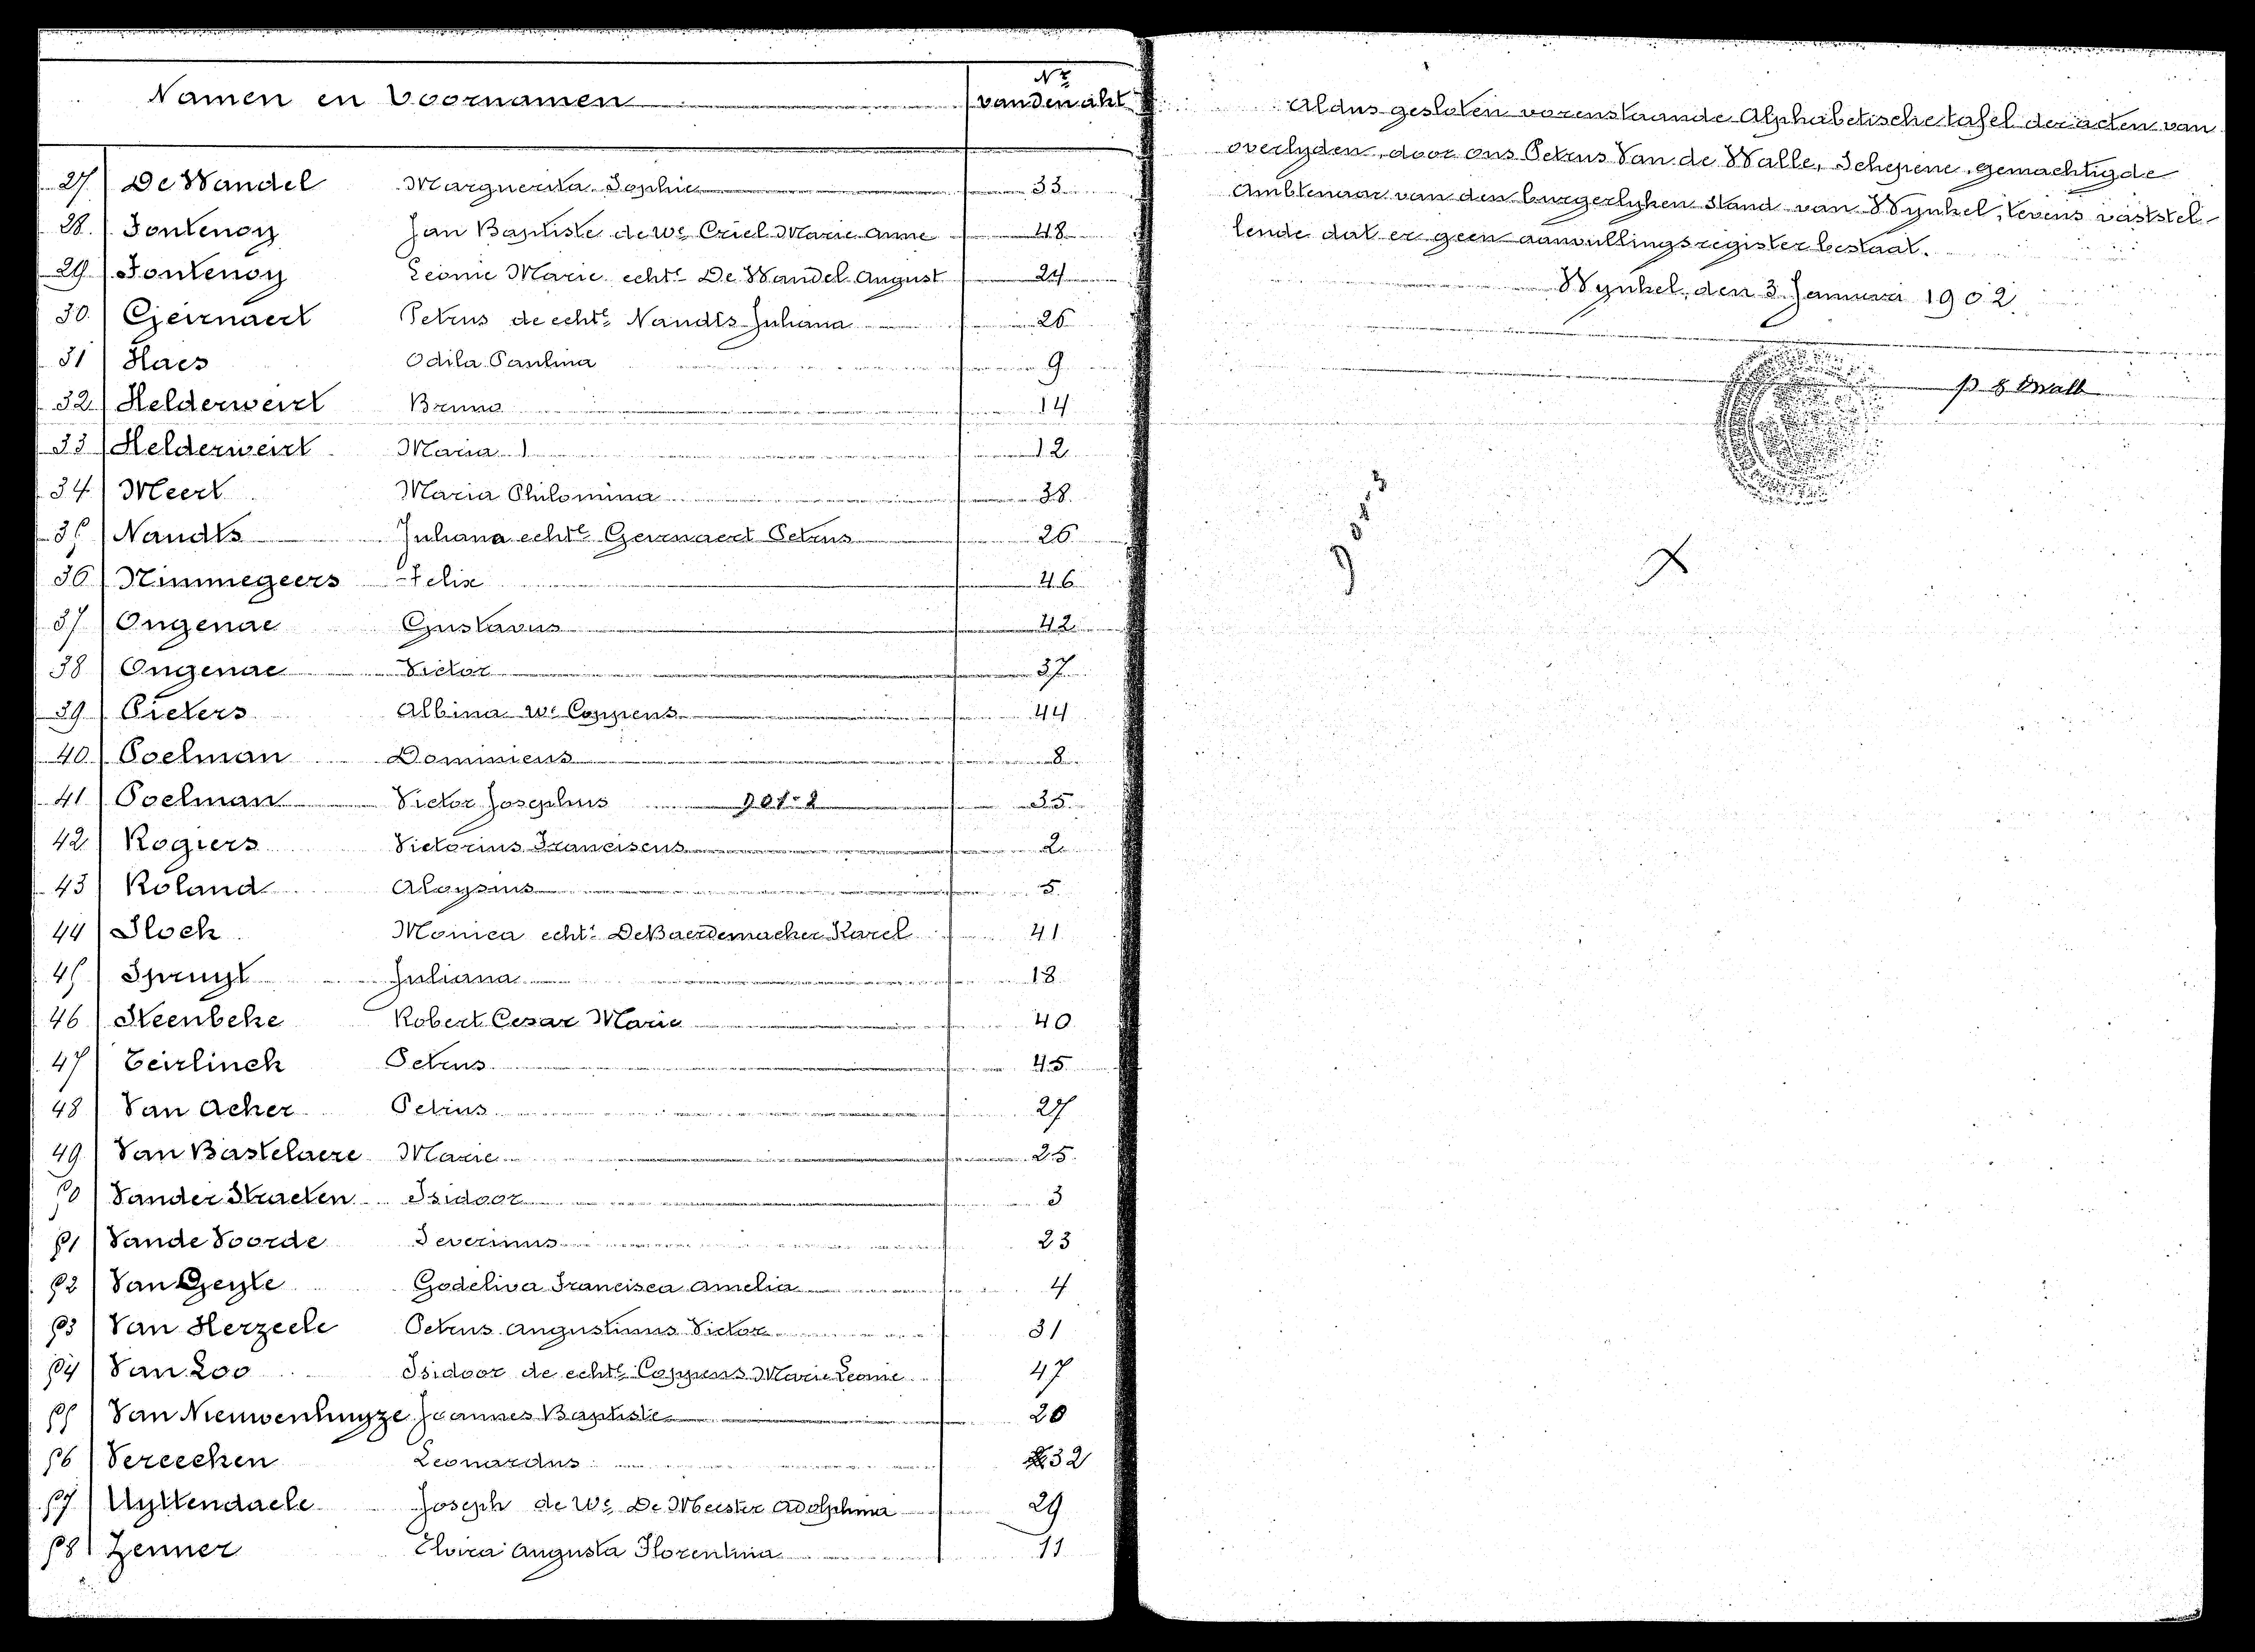 Namen en Voornamen Nr van den akt
27 De Wandel Marguerita Sophie 33
28. Fontenoy Jan Baptiste de We Criel Marie Anne 48
29 Fontenoy Leonie Marie echte De Wandel August 24
30. Geirnaert Petrus de echte Nandts Juliana 26
31 Haes Odila Paulina 9
32 Helderweirt Bruno 14
33 Helderweirt Maria 12
34 Meert Maria Philomina 38
35 Nandts Juliana echte Geirnaert Petrus 26
36 Nimmegeers Felix 46
37 Ongenae Gustavus 42
38 Ongenae Victor 37
39 Pieters Albina We Coppens 44
40 Poelman Dominicus 8
41 Poelman Victor Josephus 35
42 Rogiers Victorius Franciscus 2
43 Roland Aloysius 5
44 Slock Monica echte De Baerdemacker Karel 41
45 Spruyt Juliana 18
46 Steenbeke Robert Cesar Marie 40
47 Teirlinck Petrus 45
48 Van Acker Petrus 27
49 Van Bastelaere Marie 25
50 Vander Straeten Isidoor 3
51 Vande Voorde Severinus 23
52 Van Geyte Godeliva Francisca Amelia 4
53 Van Herzeele Petrus Augustinus Victor 31
54 Van Loo Isidoor de echte Coppens Marie Leonie 47
55 Van Nieuwenhuyze Joannes Baptiste 20
56 Vereecken Leonardus 32
57 Uyttendaele Joseph de We De Meester Adolphina 29
58 Zenner Elvira Augusta Florentina 11
Aldus gesloten vorenstaande Alphabetische tafel der acten van
overlyden, door ons Petrus Van de Walle, Schepene, gemachtigde
Ambtenaar van den burgerlyken stand van Wynkel, tevens vaststel-
lende dat er geen aanvullingsregister bestaat.
Wynkel, den 3 Januari 1902.